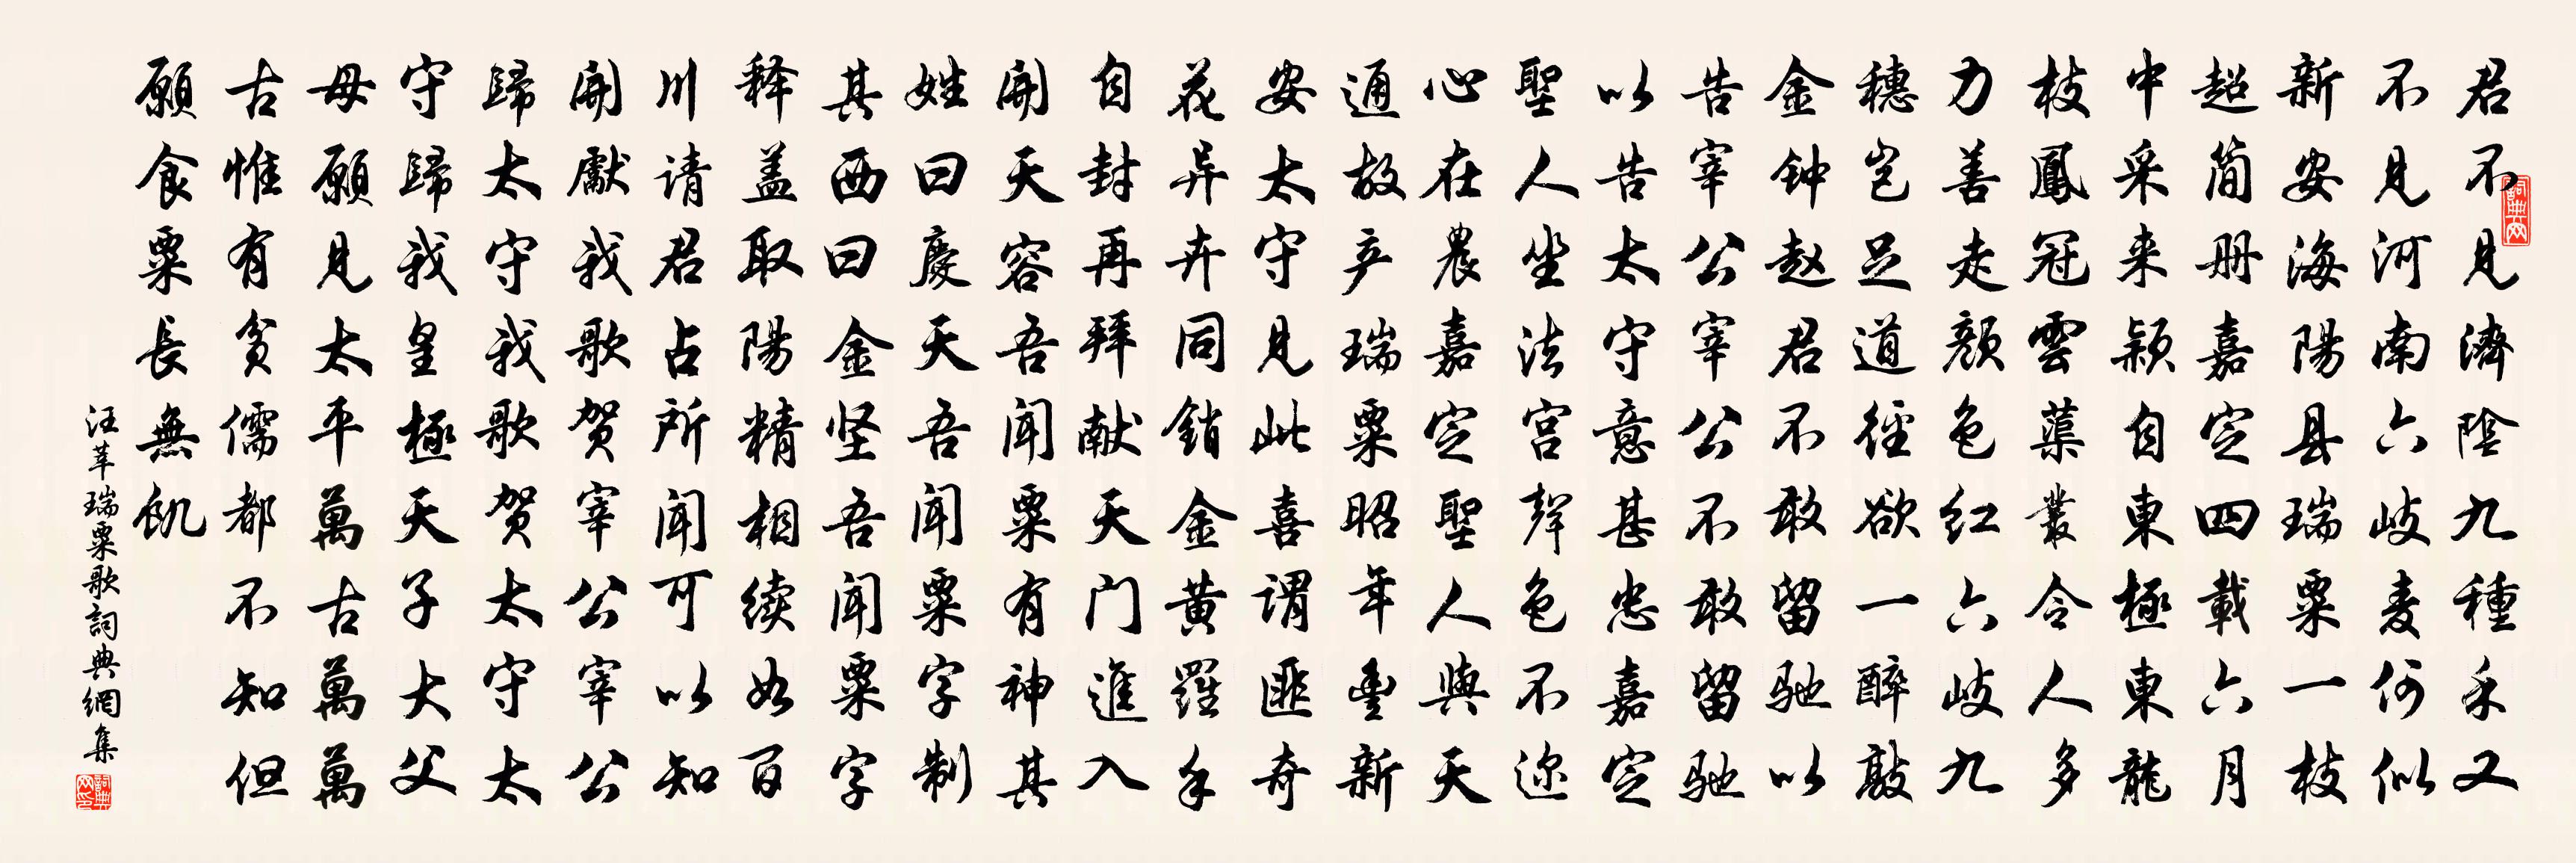 君不見濟陰九種禾又
不見河南六岐麦何似
新安海陽县瑞粟一枝
超简册嘉定四載六月
中采来颖自東極東龍
枝鳳冠雲蕖叢令人多
力善走颜色红六岐九
穗岂足道徑欲一醉敲
金钟赵君不敢留驰以
告宰公宰公不敢留驰
以告太守意甚忠嘉定
聖人坐法宫聲色不迩
心在農嘉定聖人與天
通故产瑞粟昭年豊新
安太守見此喜謂匪奇
花异卉同銷金黄羅手
自封再拜献天门進入
開天容吾聞粟有神其
姓曰慶天吾聞粟字制
其西曰金坚吾聞粟字
释盖取陽精相续如百
川请君占所聞可以知
開獻我歌贺宰公宰公
歸太守我歌贺太守太
守歸我皇極天子大父
母願見太平萬古萬萬
古惟有贫儒都不知但
願食粟長無飢
汪莘瑞粟歌詞典網集
詞典网
詞典网印